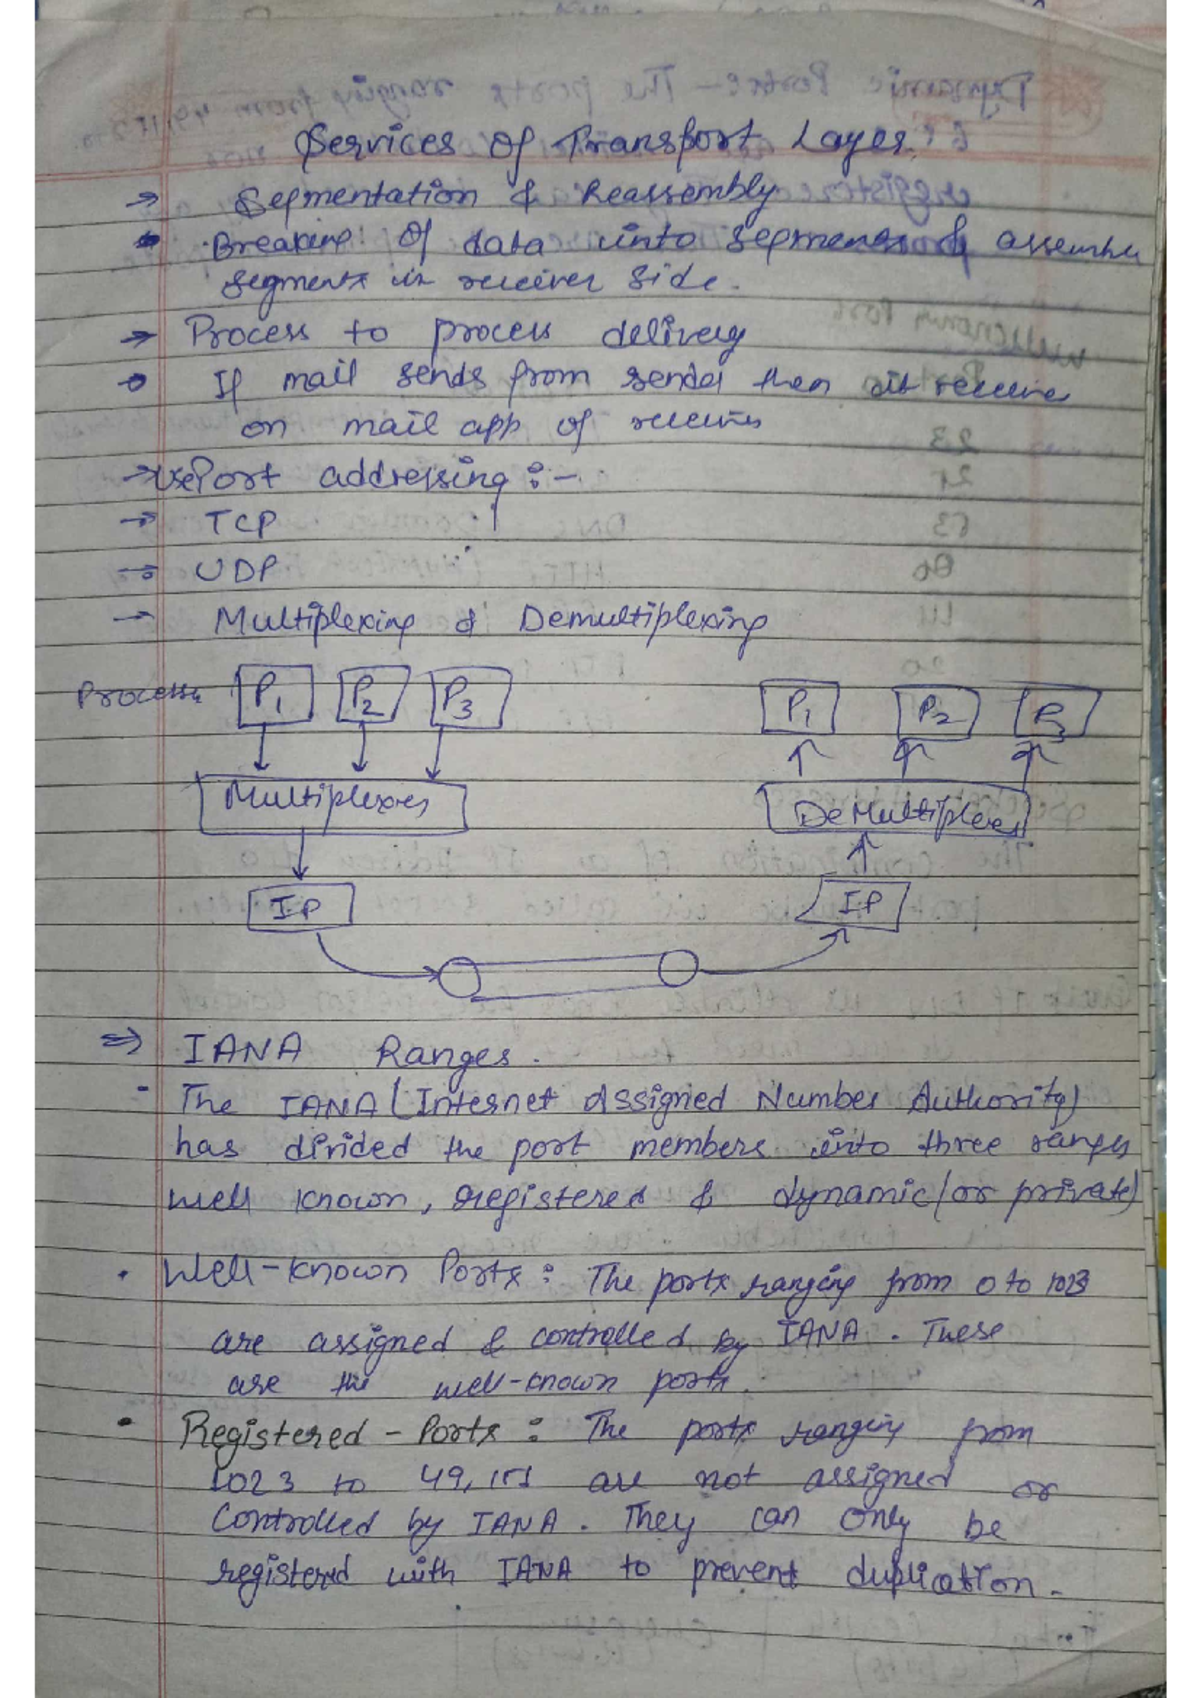 Services Of Transport Layer
→ Segmentation & Reassembly
Breaking Of data into segments & assemble
segments in receiver side.
→ Process to process delivery
If mail sends from sender then it receive
on mail app of receiver
→ Use Port addressing :-
→ TCP
→ UDP
→ Multiplexing & Demultiplexing
Process P1 P2 P3
P1 P2 P3
Multiplexer
DeMultiplexer
IP
IP
⇒ IANA Ranges.
The IANA (Internet Assigned Number Authority)
has divided the port members into three ranges
well known, registered & dynamic (or private)
• Well-known Ports: The ports ranging from 0 to 1023
are assigned & controlled by IANA. These
are the well-known ports.
• Registered - Ports : The ports ranging from
1023 to 49,151 are not assigned or
Controlled by IANA. They can only be
registered with IANA to prevent duplication.